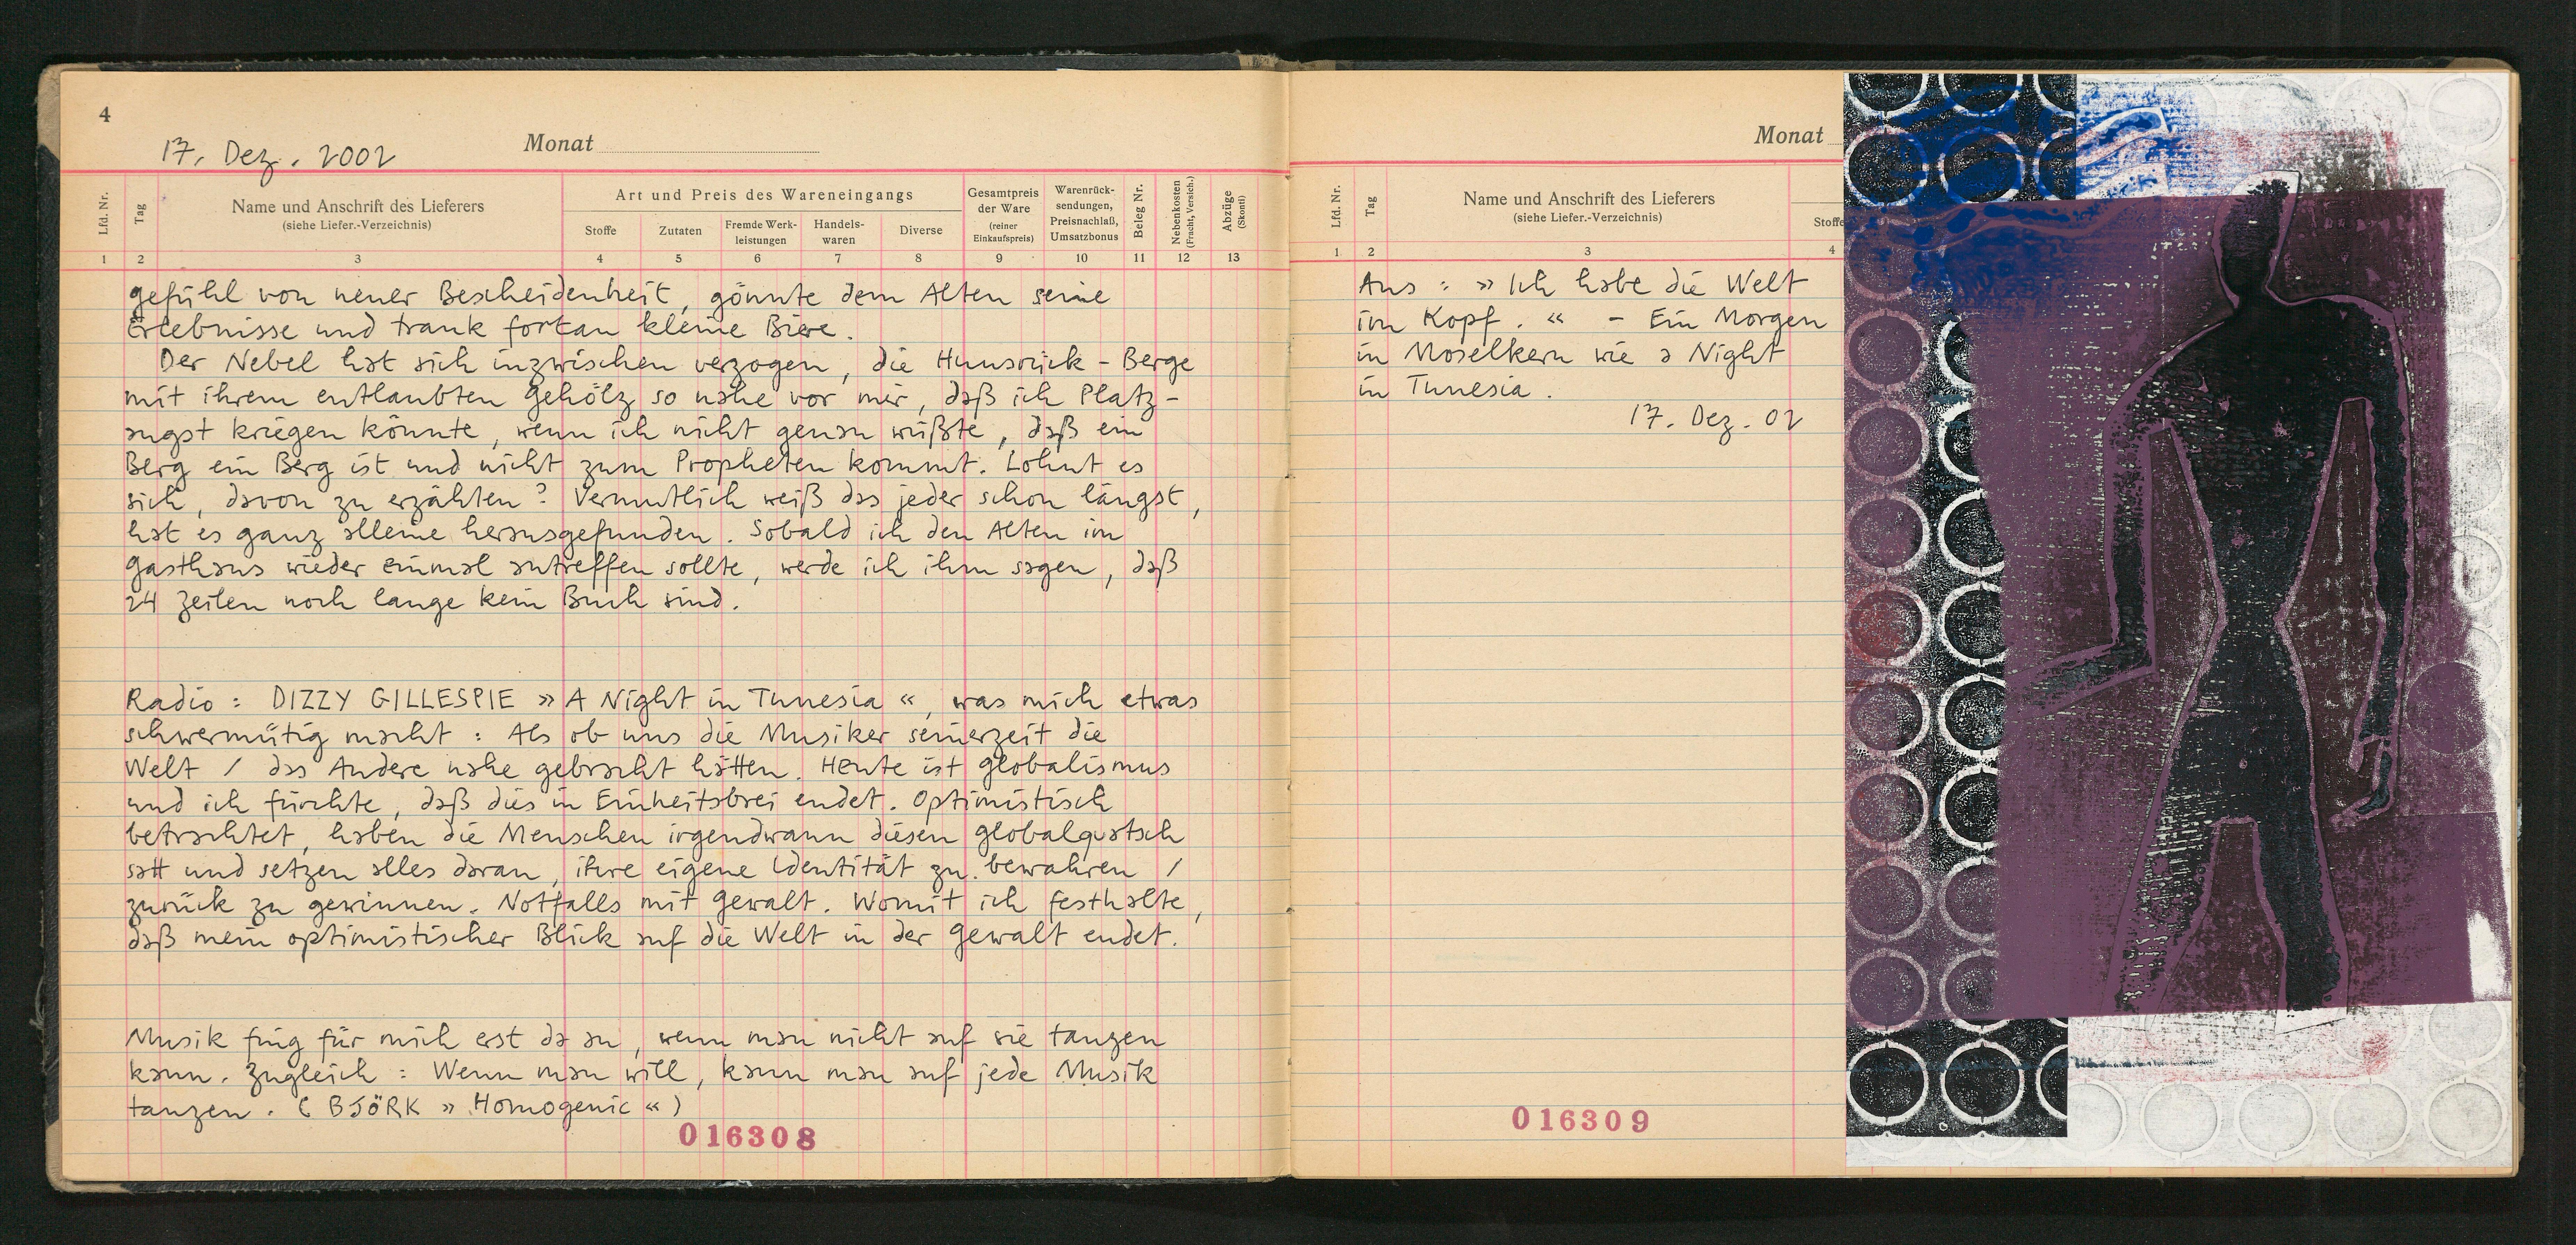 4
17. Dez. 2002
Monat
Lfd. Nr.
Tag
Name und Anschrift des Lieferers
(siehe Liefer.-Verzeichnis)
Art und Preis des Wareneingangs
Stoffe
Zutaten
Fremde Werk-
leistungen
Handels-
waren
Diverse
Gesamtpreis
der Ware
(reiner
Einkaufspreis)
Warenrück-
sendungen,
Preisnachlaß,
Umsatzbonus
Beleg Nr.
Nebenkosten
(Fracht, Versich.)
Abzüge
(Skonti)
1 2 3 4 5 6 7 8 9 10 11 12 13
gefühl von neuer Bescheidenheit, gönnte dem Alten seine
Erlebnisse und trank fortan kleine Biere.
Der Nebel hat sich inzwischen verzogen, die Hunsrück-Berge
mit ihrem entlaubten Gehölz so nahe vor mir, daß ich Platz-
angst kriegen könnte, wenn ich nicht genau wüßte, daß ein
Berg ein Berg ist und nicht zum Propheten kommt. Lohnt es
sich, davon zu erzählen? Vermutlich weiß das jeder schon längst,
hat es ganz alleine herausgefunden. Sobald ich den Alten im
Gasthaus wieder einmal antreffen sollte, werde ich ihm sagen, daß
24 Zeilen noch lange kein Buch sind.
Radio: DIZZY GILLESPIE »A Night in Tunesia«, was mich etwas
schwermütig macht: Als ob uns die Musiker seinerzeit die
Welt / das Andere nahe gebracht hätten. Heute ist Globalismus
und ich fürchte, daß dies in Einheitsbrei endet. Optimistisch
betrachtet, haben die Menschen irgendwann diesen Globalquatsch
satt und setzen alles daran, ihre eigene Identität zu bewahren /
zurück zu gewinnen. Notfalls mit Gewalt. Womit ich festhalte,
daß mein optimistischer Blick auf die Welt in der Gewalt endet.
Musik fing für mich erst da an, wenn man nicht auf sie tanzen
kann. Zugleich: Wenn man will, kann man auf jede Musik
tanzen. (BJÖRK »Homogenic«)
016308
Monat
Lfd. Nr.
Tag
Name und Anschrift des Lieferers
(siehe Liefer.-Verzeichnis)
Stoffe
1 2 3 4
Aus: »Ich habe die Welt
im Kopf.« - Ein Morgen
in Moselkern wie a Night
in Tunesia.
17. Dez. 02
016309